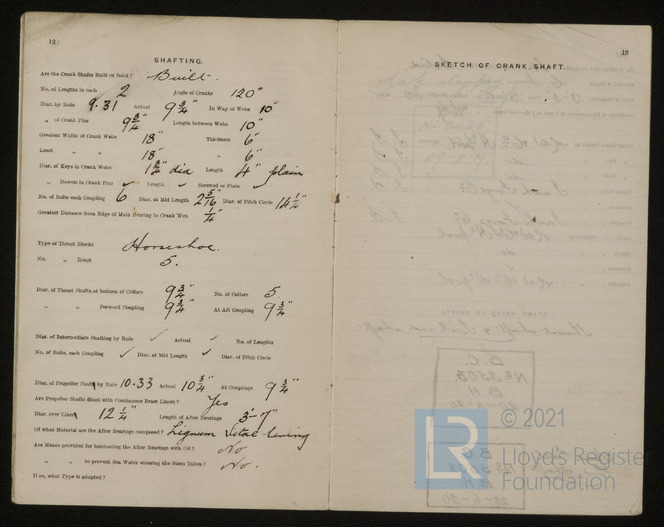 12
SHAFTING.
Are the Crank Shafts Built or Solid? Built.
No. of Lengths in each 2 Angle of Cranks 120°
Diar. by Rule 9.31 Actual 9 3/4" In Way of Webs 10"
„ of Crank Pins 9 3/4" Length between Webs 10"
Greatest Width of Crank Webs 18" Thickness 6"
Least „ „ 18" „ 6"
Diar. of Keys in Crank Webs 1 3/4" dia Length 4" plain
„ Dowels in Crank Pins ✓ Length ✓ Screwed or Plain ✓
No. of Bolts each Coupling 6 Diar. at Mid Length 2 5/16" Diar. of Pitch Circle 14 1/2"
Greatest Distance from Edge of Main Bearing to Crank Web 1/4"
Type of Thrust Blocks Horseshoe.
No. „ Rings 5.
Diar. of Thrust Shafts at bottom of Collars 9 3/4" No. of Collars 5
„ „ Forward Coupling 9 3/4" At Aft Coupling 9 3/4"
Diar. of Intermediate Shafting by Rule ✓ Actual ✓ No. of Lengths
No. of Bolts, each Coupling ✓ Diar. at Mid Length ✓ Diar. of Pitch Circle
Diar. of Propeller Shaft by Rule 10.33 Actual 10 3/4" At Couplings 9 3/4"
Are Propeller Shafts fitted with Continuous Brass Liners? Yes
Diar. over Liners 12 1/4" Length of After Bearings 3'-7"
Of what Material are the After Bearings composed? Lignum Vitae lining
Are Means provided for lubricating the After Bearings with Oil? No
„ „ to prevent Sea Water entering the Stern Tubes? No.
If so, what Type is adopted?
SKETCH OF CRANK SHAFT.
© 2021
LR
Lloyd's Register
Foundation